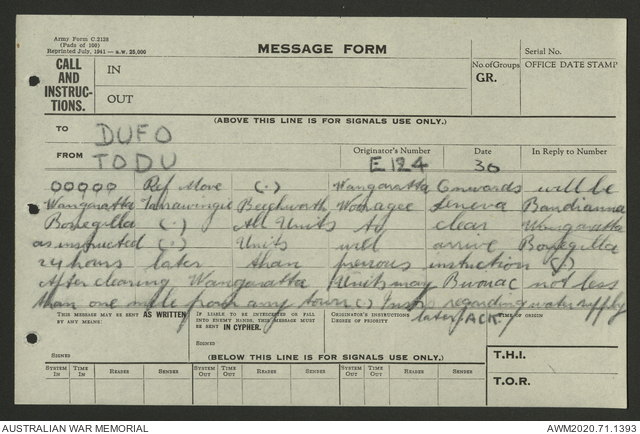 Army Form C.2128
(Pads of 100)
Reprinted July, 1941—a.w. 25,000
MESSAGE FORM
Serial No.
CALL AND INSTRUC-TIONS.
IN
OUT
No. of Groups
GR.
OFFICE DATE STAMP
(ABOVE THIS LINE IS FOR SIGNALS USE ONLY.)
TO DUFO
FROM TODU
Originator's Number E124
Date 30
In Reply to Number
00900 Ref Move (.) Wangaratta Onwards will be
Wangaratta Tarrawingie Beechworth Wooragee Leneva Bandianna
Bonegilla (.) All Units to clear Wangaratta
as instructed (.) Units will arrive Bonegilla
24 hours later than previous instruction (.)
After clearing Wangaratta Units may Bivouac not less
than one mile from any town (.) Insts regarding water supply
later ACK
THIS MESSAGE MAY BE SENT AS WRITTEN BY ANY MEANS:
IF LIABLE TO BE INTERCEPTED OR FALL INTO ENEMY HANDS, THIS MESSAGE MUST BE SENT IN CIPHER.
ORIGINATOR'S INSTRUCTIONS
DEGREE OF PRIORITY
TIME OF ORIGIN
SIGNED
SIGNED
(BELOW THIS LINE IS FOR SIGNALS USE ONLY.)
T.H.I.
T.O.R.
SYSTEM IN TIME IN READER SENDER SYSTEM OUT TIME OUT READER SENDER SYSTEM OUT TIME OUT READER SENDER
AUSTRALIAN WAR MEMORIAL
AWM2020.71.1393